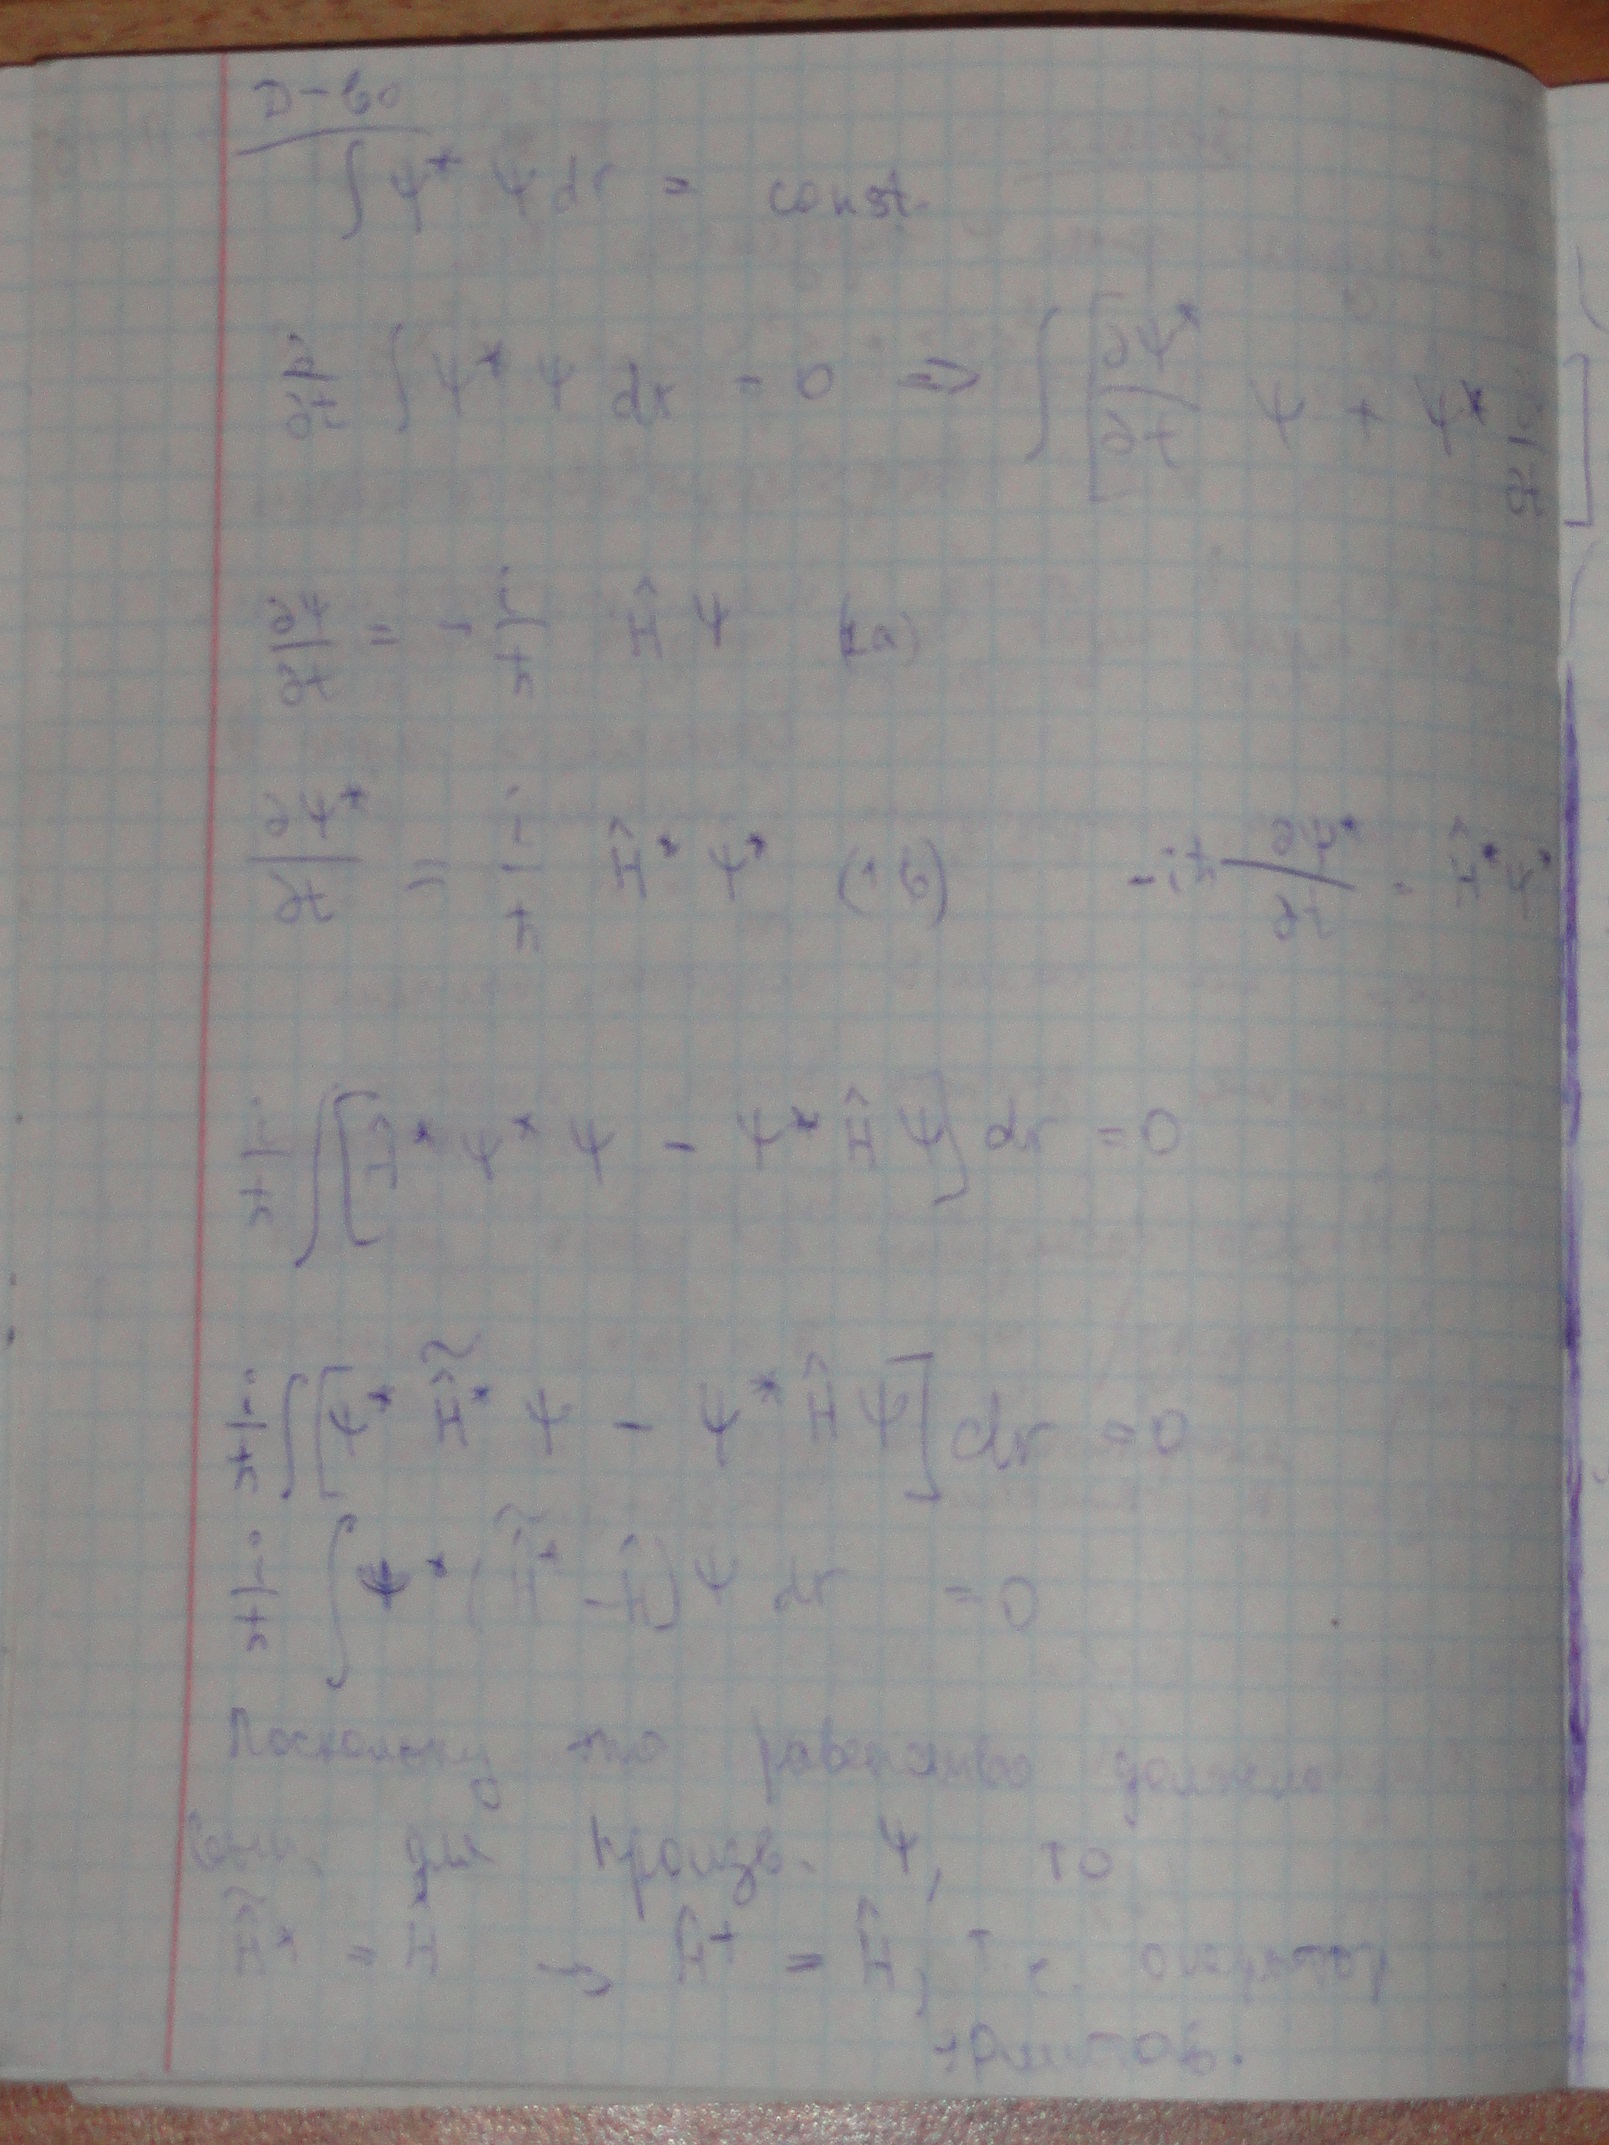 Д-во
∫ Ψ* Ψ dr = const.
∂/∂t ∫ Ψ* Ψ dr = 0 => ∫ [ ∂Ψ*/∂t Ψ + Ψ* ∂Ψ/∂t ]
∂Ψ/∂t = - i/ħ Ĥ Ψ (1a)
∂Ψ*/∂t = i/ħ Ĥ* Ψ* (1б) -iħ ∂Ψ*/∂t = Ĥ* Ψ*
i/ħ ∫ [ Ĥ* Ψ* Ψ - Ψ* Ĥ Ψ ] dr = 0
i/ħ ∫ [ Ψ* H̃̂* Ψ - Ψ* Ĥ Ψ ] dr = 0
i/ħ ∫ Ψ* ( H̃̂* - Ĥ ) Ψ dr = 0
Поскольку это равенство должно
для произв. Ψ, то
H̃̂* = Ĥ → Ĥ⁺ = Ĥ, т.е. оператор
эрмитов.